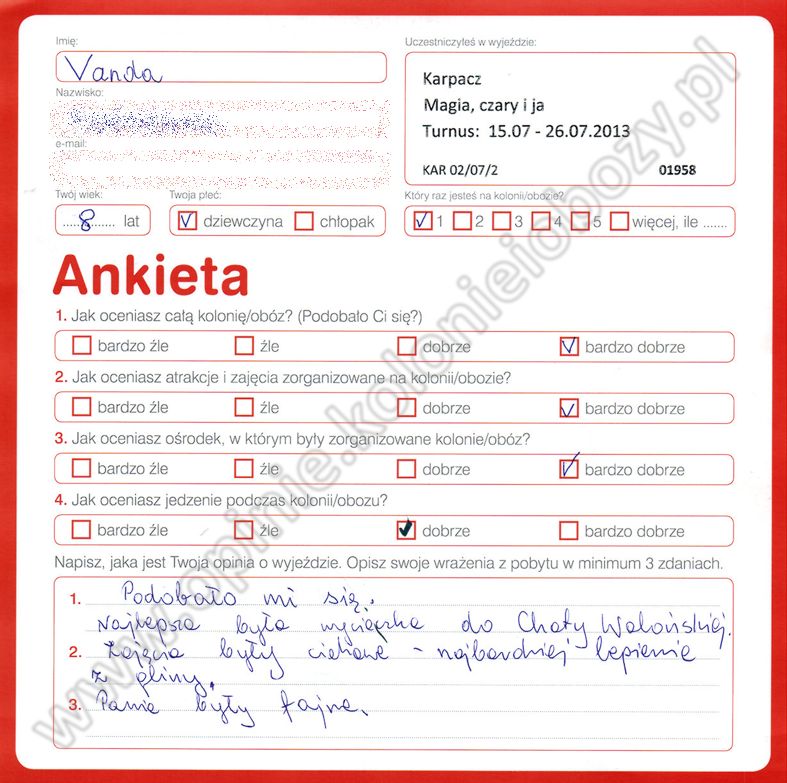 Imię:
Uczestniczyłeś w wyjeździe:
Vanda
Karpacz
Magia, czary i ja
Turnus: 15.07 - 26.07.2013
KAR 02/07/2 01958
Nazwisko:
e-mail:
Twój wiek:
Twoja płeć:
Który raz jesteś na kolonii/obozie?
8 lat
dziewczyna chłopak
1 2 3 4 5 więcej, ile .......
Ankieta
1. Jak oceniasz całą kolonię/obóz? (Podobało Ci się?)
bardzo źle źle dobrze bardzo dobrze
2. Jak oceniasz atrakcje i zajęcia zorganizowane na kolonii/obozie?
bardzo źle źle dobrze bardzo dobrze
3. Jak oceniasz ośrodek, w którym były zorganizowane kolonie/obóz?
bardzo źle źle dobrze bardzo dobrze
4. Jak oceniasz jedzenie podczas kolonii/obozu?
bardzo źle źle dobrze bardzo dobrze
Napisz, jaka jest Twoja opinia o wyjeździe. Opisz swoje wrażenia z pobytu w minimum 3 zdaniach.
1. Podobało mi się.
Najlepsza była wycieczka do Chaty Walońskiej.
2. Zajęcia były ciekawe - najbardziej lepienie
z gliny.
3. Panie były fajne.
www.opinie.kolonieiobozy.pl